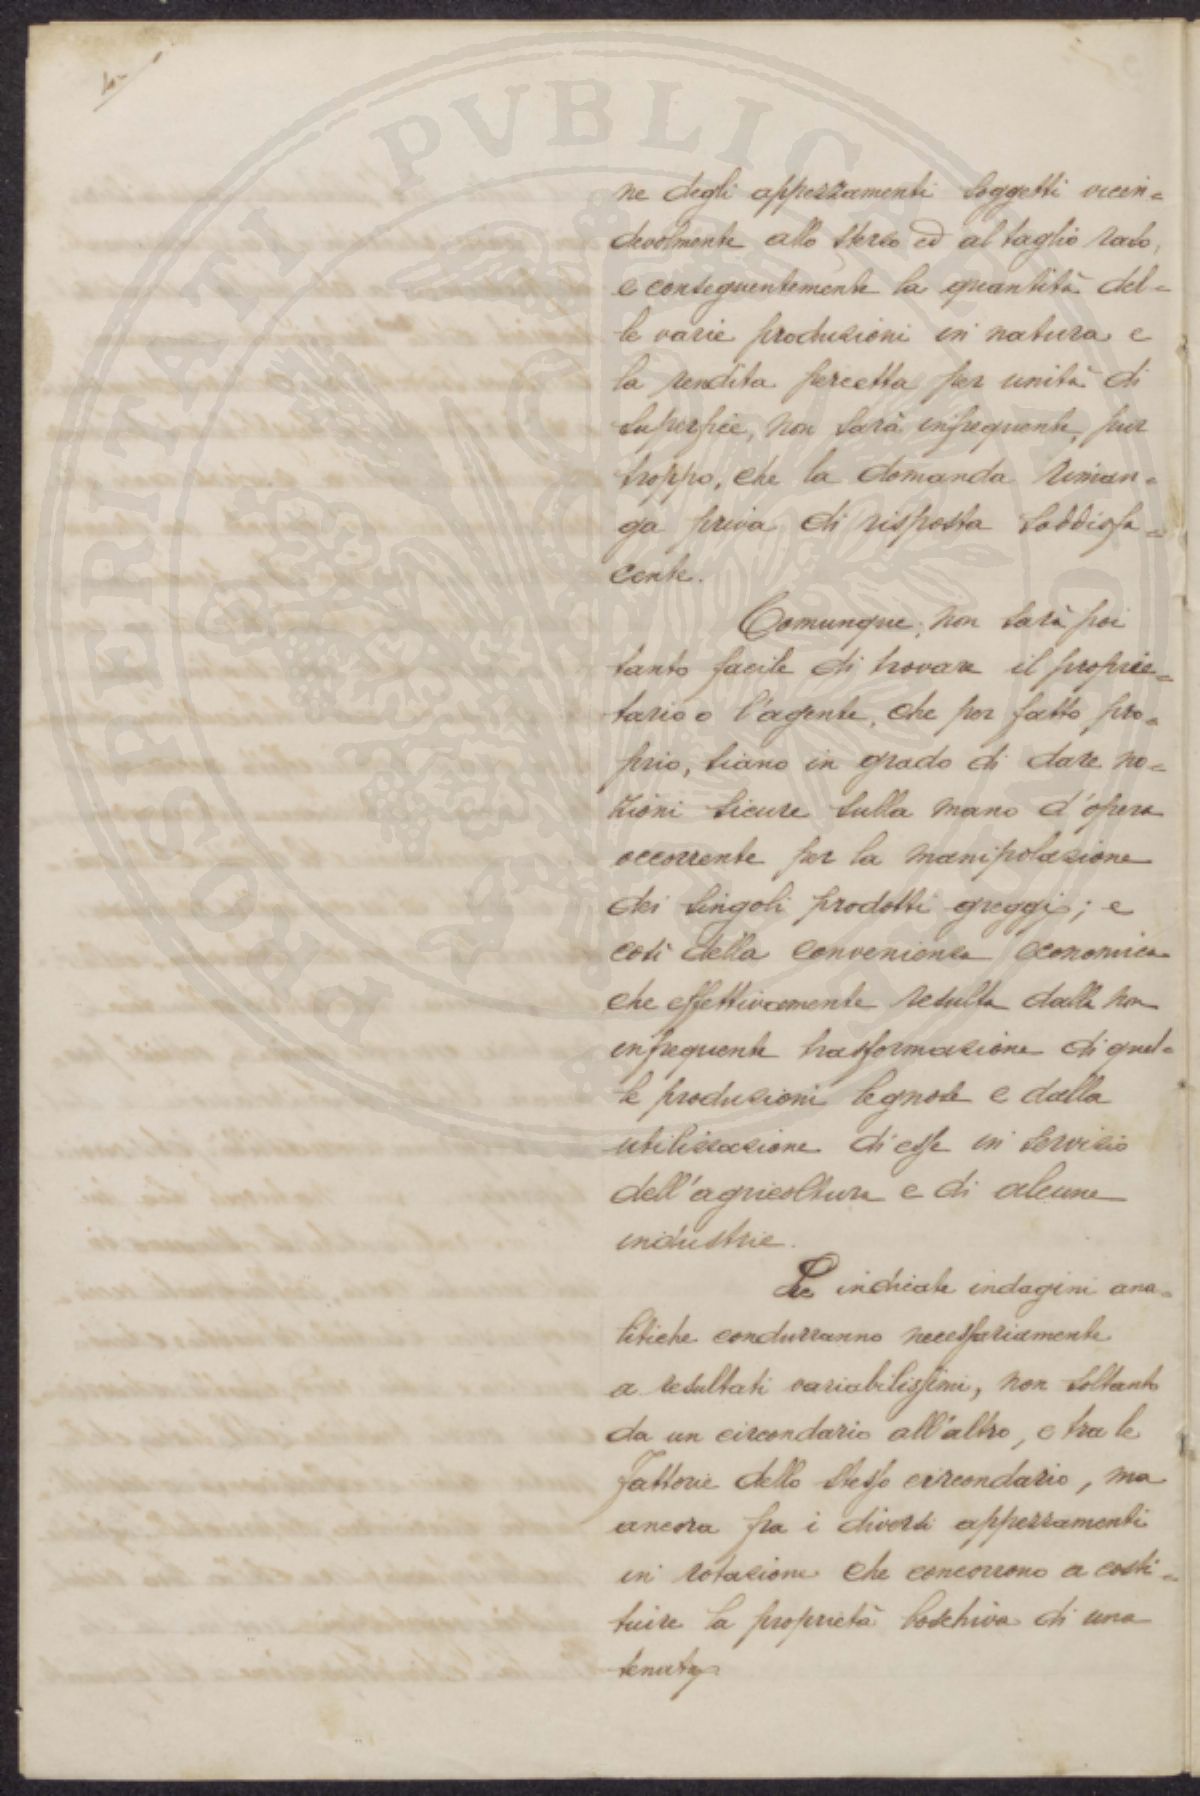 ne degli appezzamenti soggetti vicen=
devolmente allo sterzo ed al taglio raso,
e conseguentemente la quantità del=
le varie produzioni in natura e
la rendita percetta per unità di
superficie, non sarà infrequente, pur
troppo, che la domanda riman=
ga priva di risposta soddisfa=
cente.
Comunque, non sarà poi
tanto facile di trovare il proprie=
tario o l'agente, che per fatto pro=
prio, siano in grado di dare no=
zioni sicure sulla mano d'opera
occorrente per la manipolazione
dei singoli prodotti greggi; e
così della convenienza economica
che effettivamente resulta dalla non
infrequente trasformazione di quel=
le produzioni legnose e dalla
utilizzazione di esse in servizio
dell'agricoltura e di alcune
industrie.
Le indicate indagini ana=
litiche condurranno necessariamente
a resultati variabilissimi, non soltanto
da un circondario all'altro, e tra le
Fattorie dello stesso circondario, ma
ancora fra i diversi appezzamenti
in rotazione che concorrono a costi=
tuire la proprietà boschiva di una
tenuta.
PROSPERITATI PVBLICAE